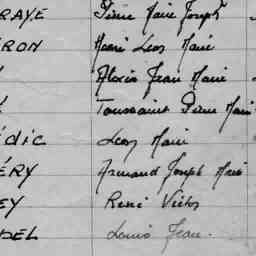 RAYE Pierre Marie Joseph
RON Henri Leon Marie
Alexis Jean Marie
Toussaint Pierre Marie
ÉDIC Leon Marie
ÉRY Armand Joseph Marie
EY René Victor
DEL Louis Jean.